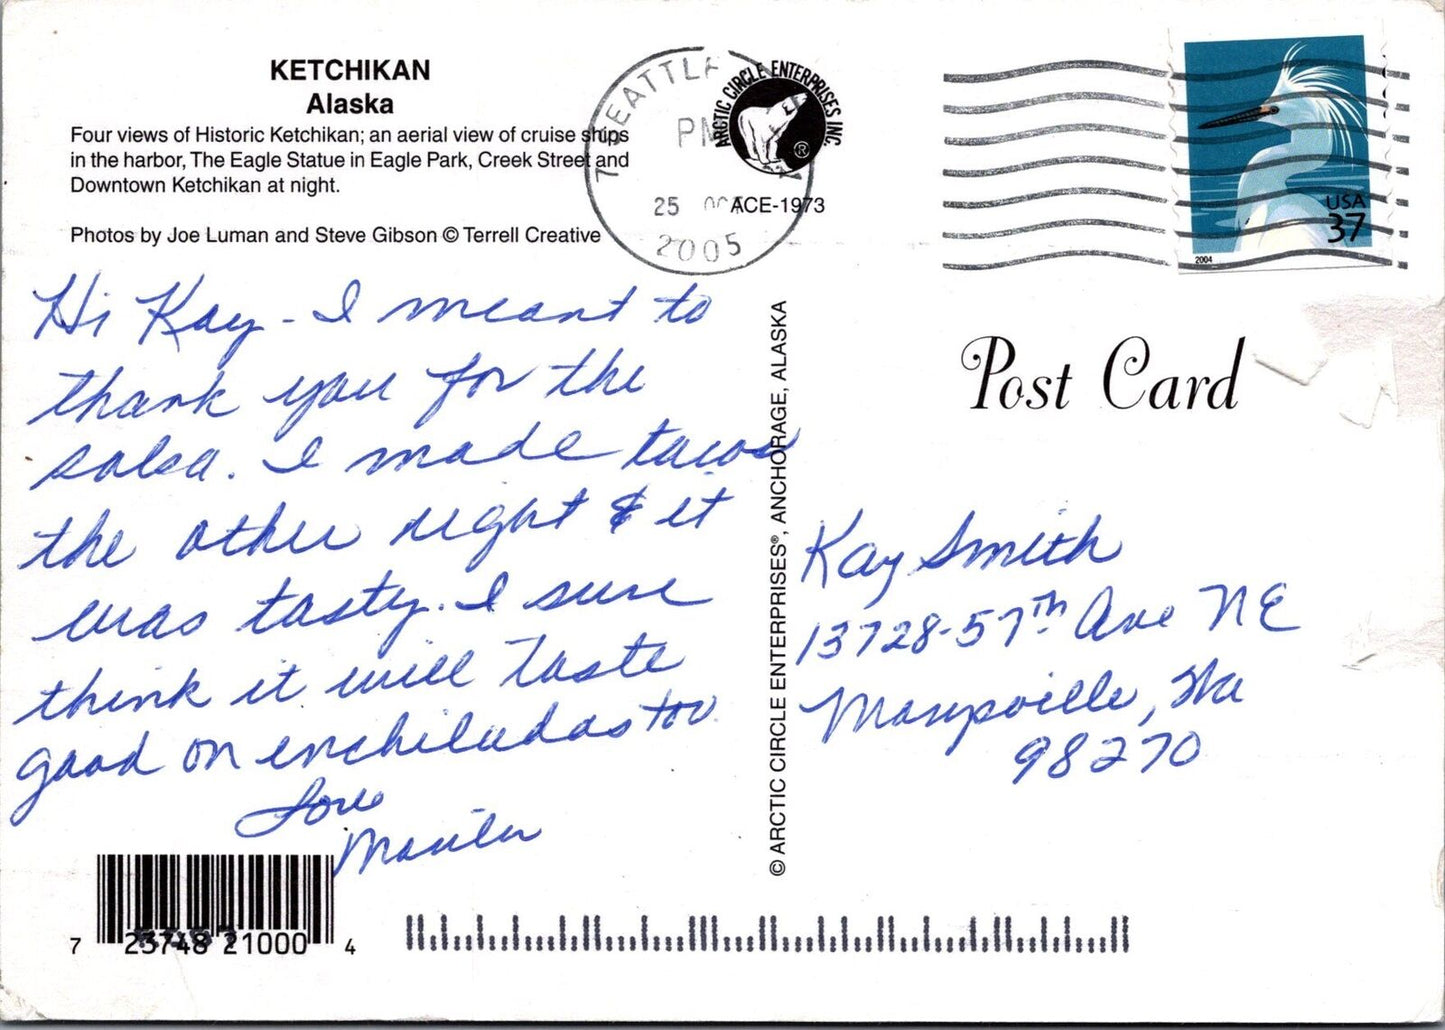 KETCHIKAN
Alaska
Four views of Historic Ketchikan; an aerial view of cruise ships
in the harbor, The Eagle Statue in Eagle Park, Creek Street and
Downtown Ketchikan at night.
Photos by Joe Luman and Steve Gibson © Terrell Creative
SEATTLE
PM
25 OCT
2005
ARCTIC CIRCLE ENTERPRISES INC.
®
ACE-1973
USA
37
2004
Hi Kay - I meant to
thank you for the
salsa. I made tacos
the other night & it
was tasty. I sure
think it will taste
good on enchiladas too
Love
© ARCTIC CIRCLE ENTERPRISES®, ANCHORAGE, ALASKA
Post Card
Kay Smith
13728-57th Ave NE
Marysville, Wa
98270
7 23748 21000 4